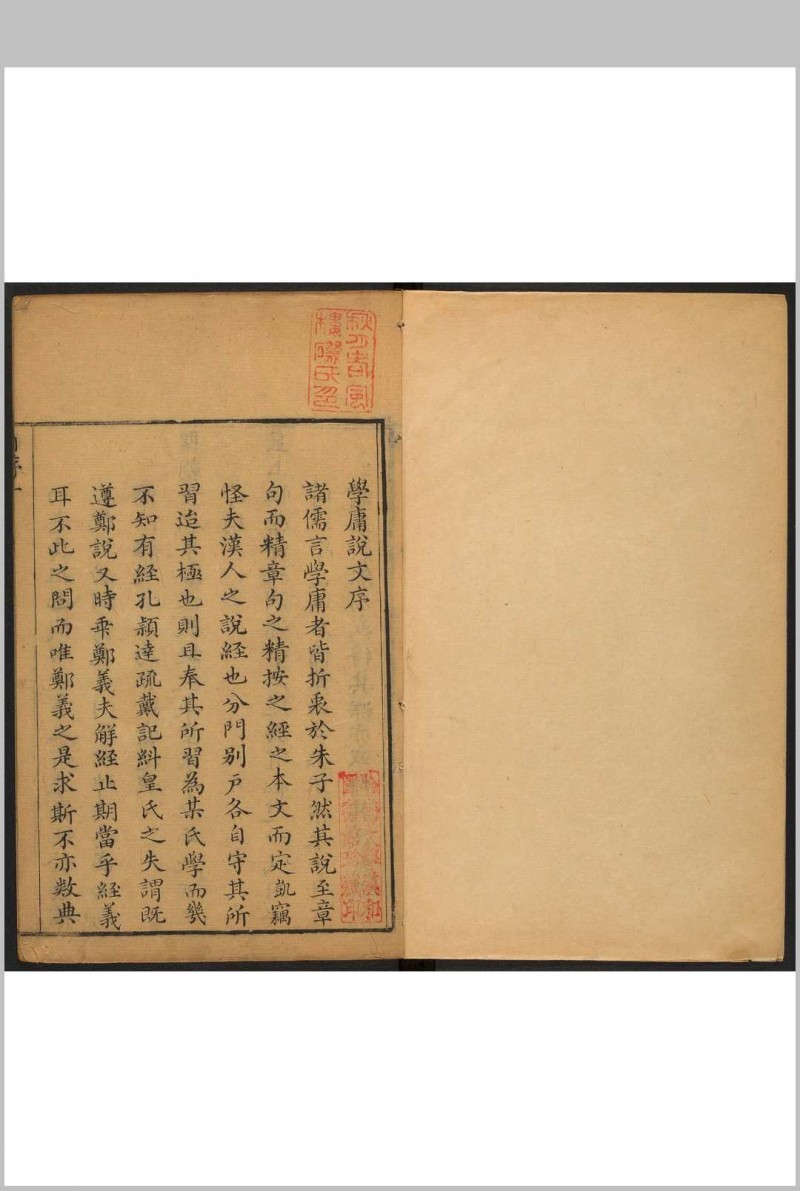 學庸說文序
諸儒言學庸者皆折衷於朱子然其說至章
句而精章句之精按之經之本文而定凱竊
怪夫漢人之說經也分門別戶各自守其所
習迨其極也則且奉其所習為某氏學而幾
不知有經孔頴逹疏戴記糾皇氏之失謂既
遵鄭說又時乖鄭義夫解經止期當乎經義
耳不此之問而唯鄭義之是求斯不亦數典
序一